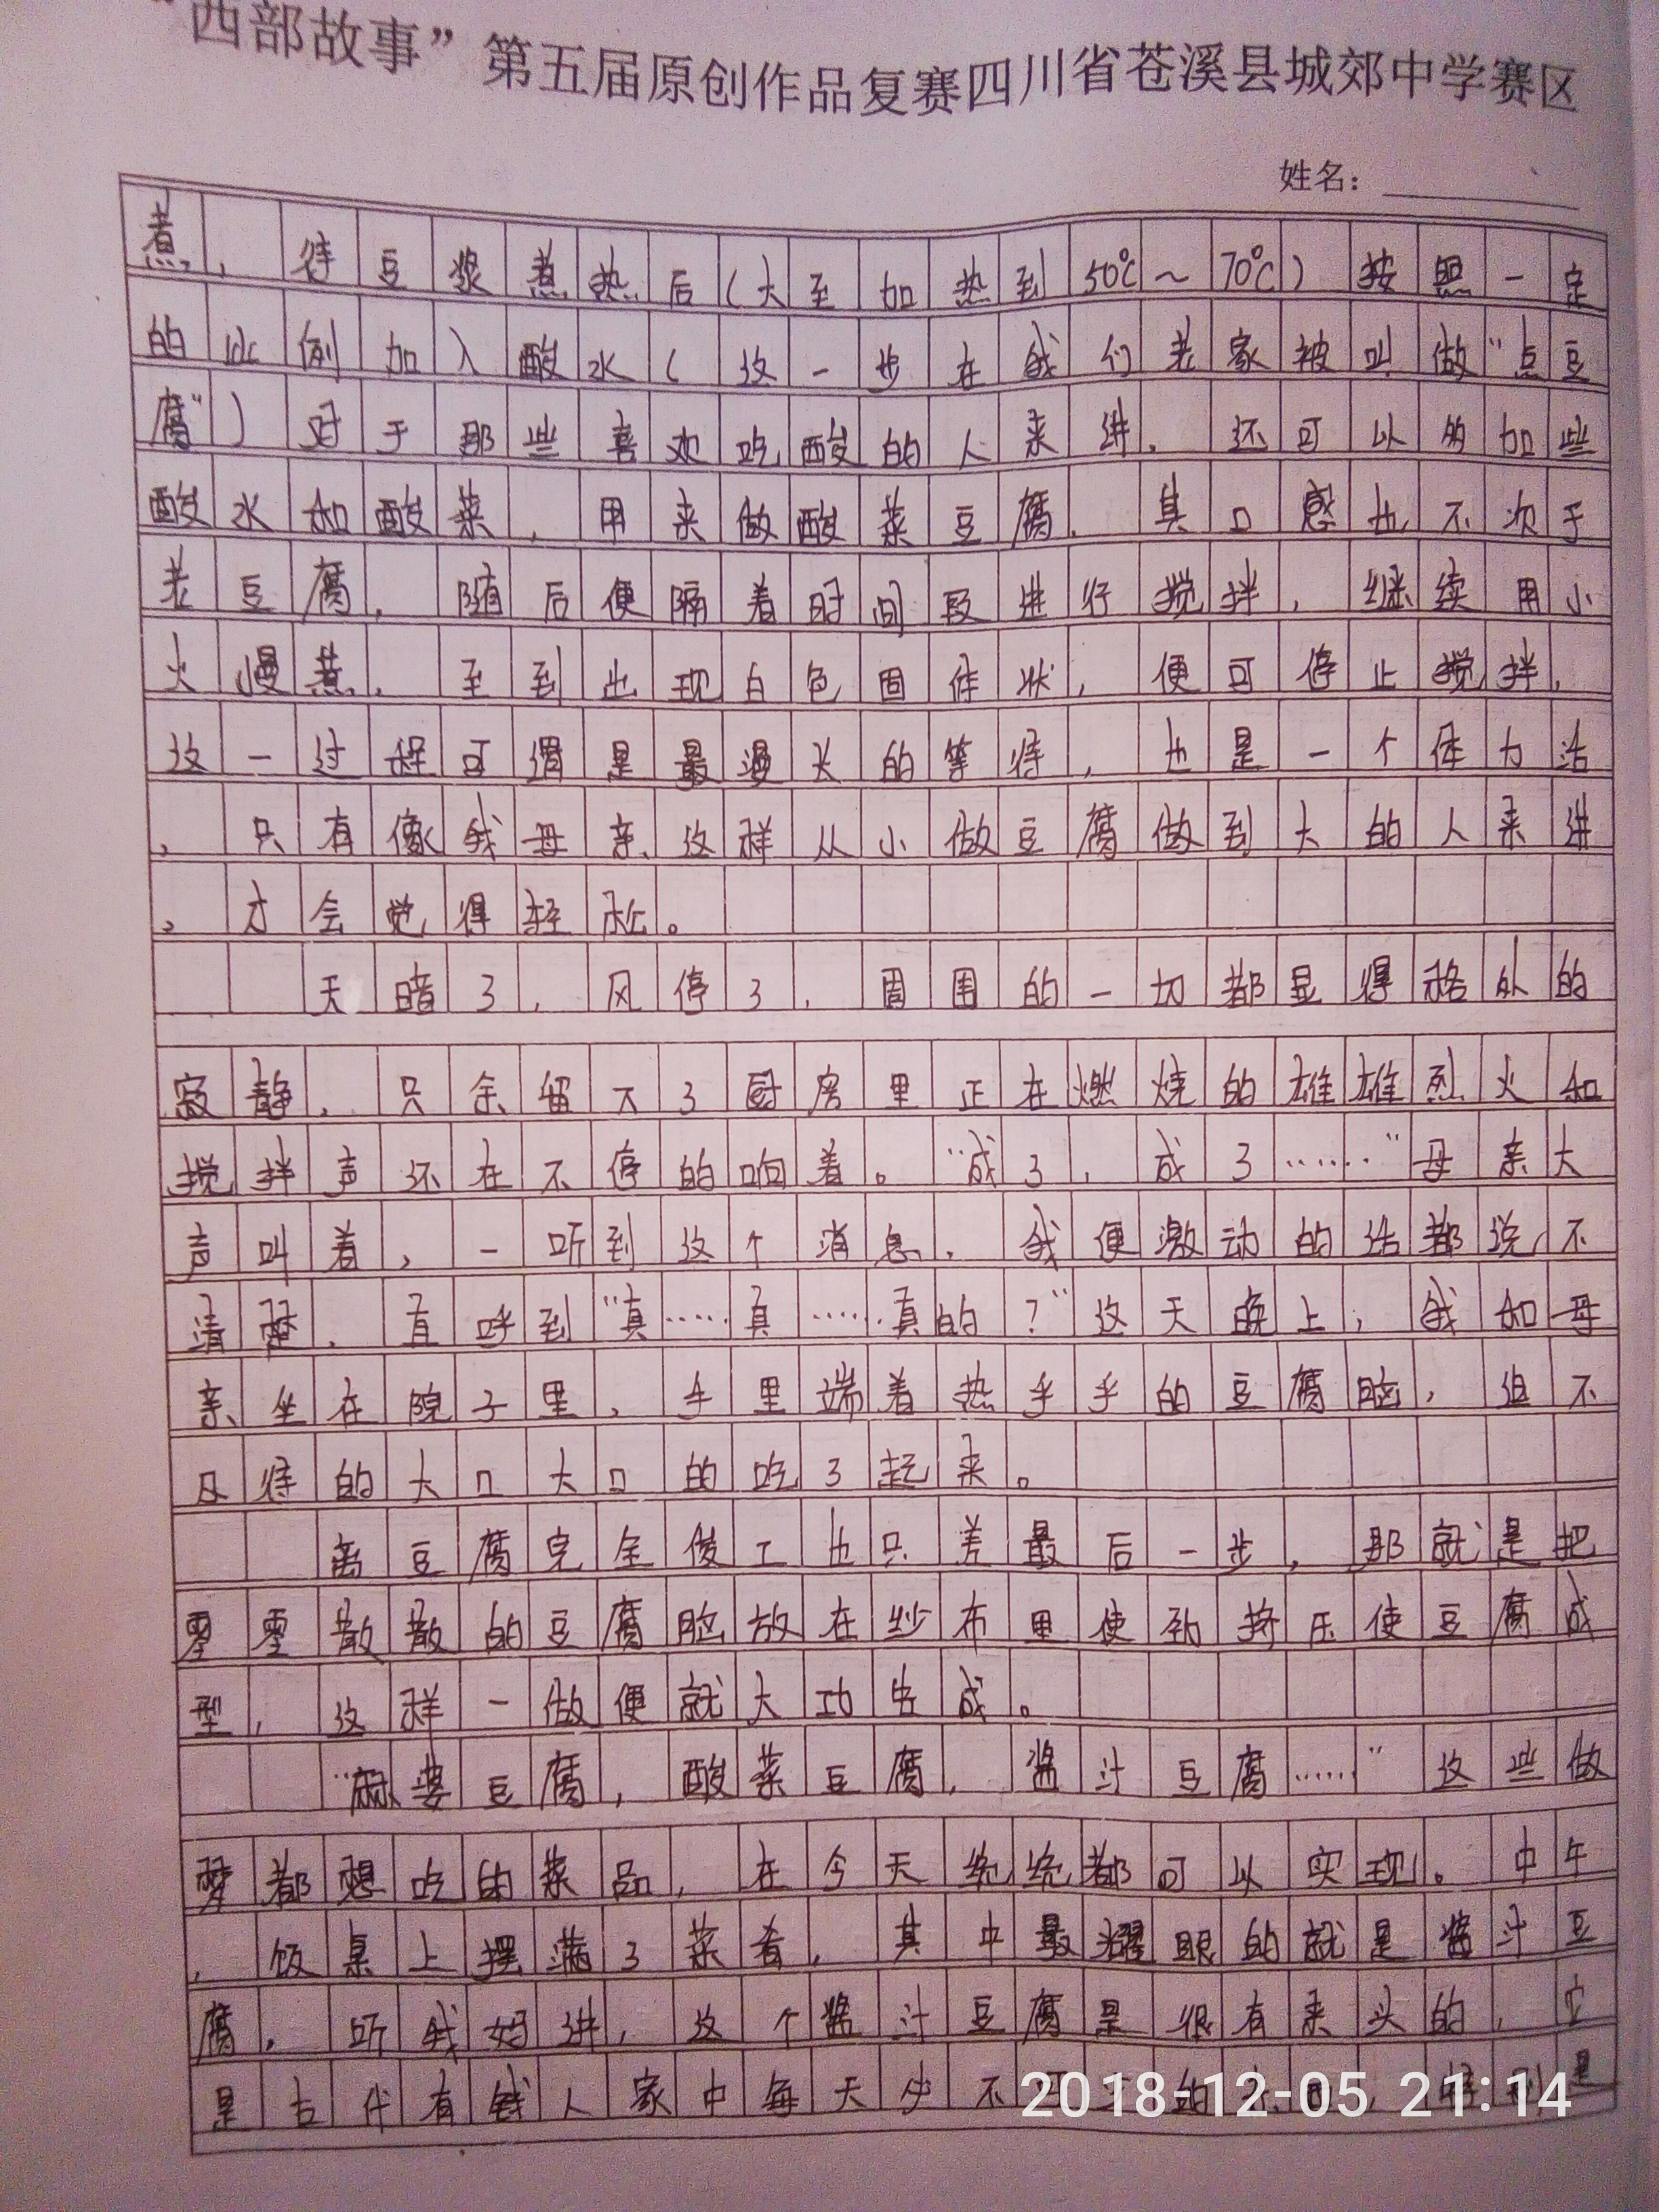 “西部故事”第五届原创作品复赛四川省苍溪县城郊中学赛区
姓名：
煮，待豆浆煮热后（大至加热到50℃～70℃）按照一定
的比例加入酸水（这一步在我们老家被叫做“点豆
腐”）对于那些喜欢吃酸的人来讲，还可以多加些
酸水和酸菜，用来做酸菜豆腐，其口感也不次于
老豆腐，随后便隔着时间段进行搅拌，继续用小
火慢煮，至到出现白色固体状，便可停止搅拌，
这一过程可谓是最漫长的等待，也是一个体力活
，只有像我母亲这样从小做豆腐做到大的人来讲
，才会觉得轻松。
天暗了，风停了，周围的一切都显得格外的
寂静，只余留下了厨房里正在燃烧的雄雄烈火和
搅拌声还在不停的响着。“成了，成了……”母亲大
声叫着，一听到这个消息，我便激动的话都说不
清楚，直呼到“真……真……真的？”这天晚上，我和母
亲坐在院子里，手里端着热乎乎的豆腐脑，迫不
及待的大口大口的吃了起来。
离豆腐完全俊工也只差最后一步，那就是把
零零散散的豆腐脑放在纱布里使劲挤压使豆腐成
型，这样一做便就大功告成。
“麻婆豆腐，酸菜豆腐，酱汁豆腐……”这些做
梦都想吃的菜品，在今天统统都可以实现。中午
，饭桌上摆满了菜肴，其中最耀眼的就是酱汁豆
腐，听我妈讲，这个酱汁豆腐是很有来头的，它
是古代有钱人家中每天少不的是
2018-12-05 21:14